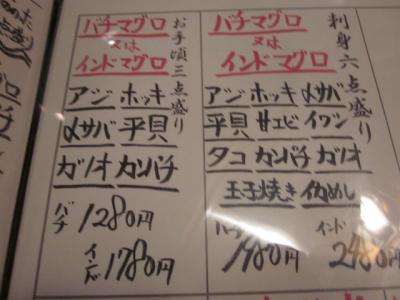 刺身六点盛り
バチマグロ
又は
インドマグロ
アジ ホッキ 〆サバ
平貝 甘エビ イワシ
タコ カンパチ カツオ
玉子焼き イカめし
バチ 1980円
インド 2480円
お手頃三点盛り
バチマグロ
又は
インドマグロ
アジ ホッキ
〆サバ 平貝
カツオ カンパチ
バチ 1280円
インド 1780円